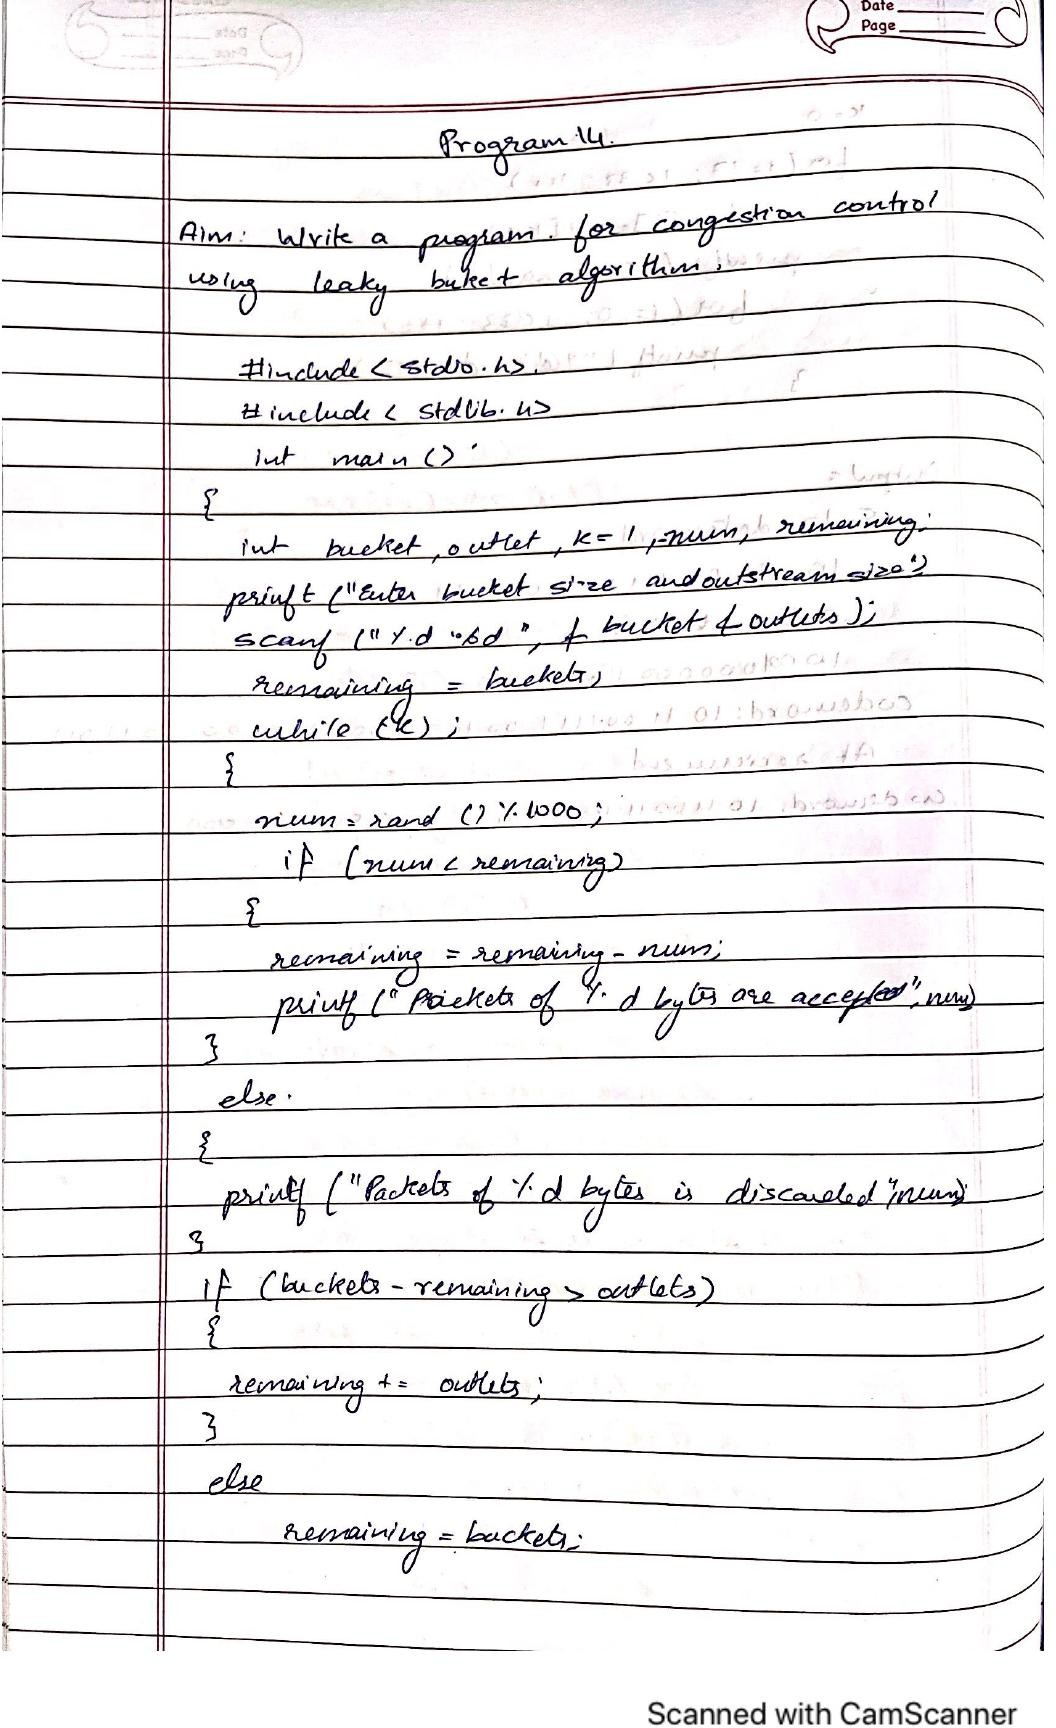 Date
Page
Program 14.
Aim: Write a program. for congestion control
using leaky buket algorithm.
#include < stdio.h>.
#include < stdlib.h>
int main ()
{
int bucket, outlet, k=1, num, remaining;
printf ("Enter bucket size and outstream size")
scanf ("%d %d", & bucket & outlets );
remaining = buckets;
while (k) ;
{
num = rand () % 1000 ;
if (num < remaining)
{
remaining = remaining - num;
printf (" Packets of % d bytes are accepted", num)
}
else.
{
printf ("Packets of % d bytes is discarded", num);
}
if (buckets - remaining > outlets)
{
remaining += outlets ;
}
else
remaining = buckets;
Scanned with CamScanner